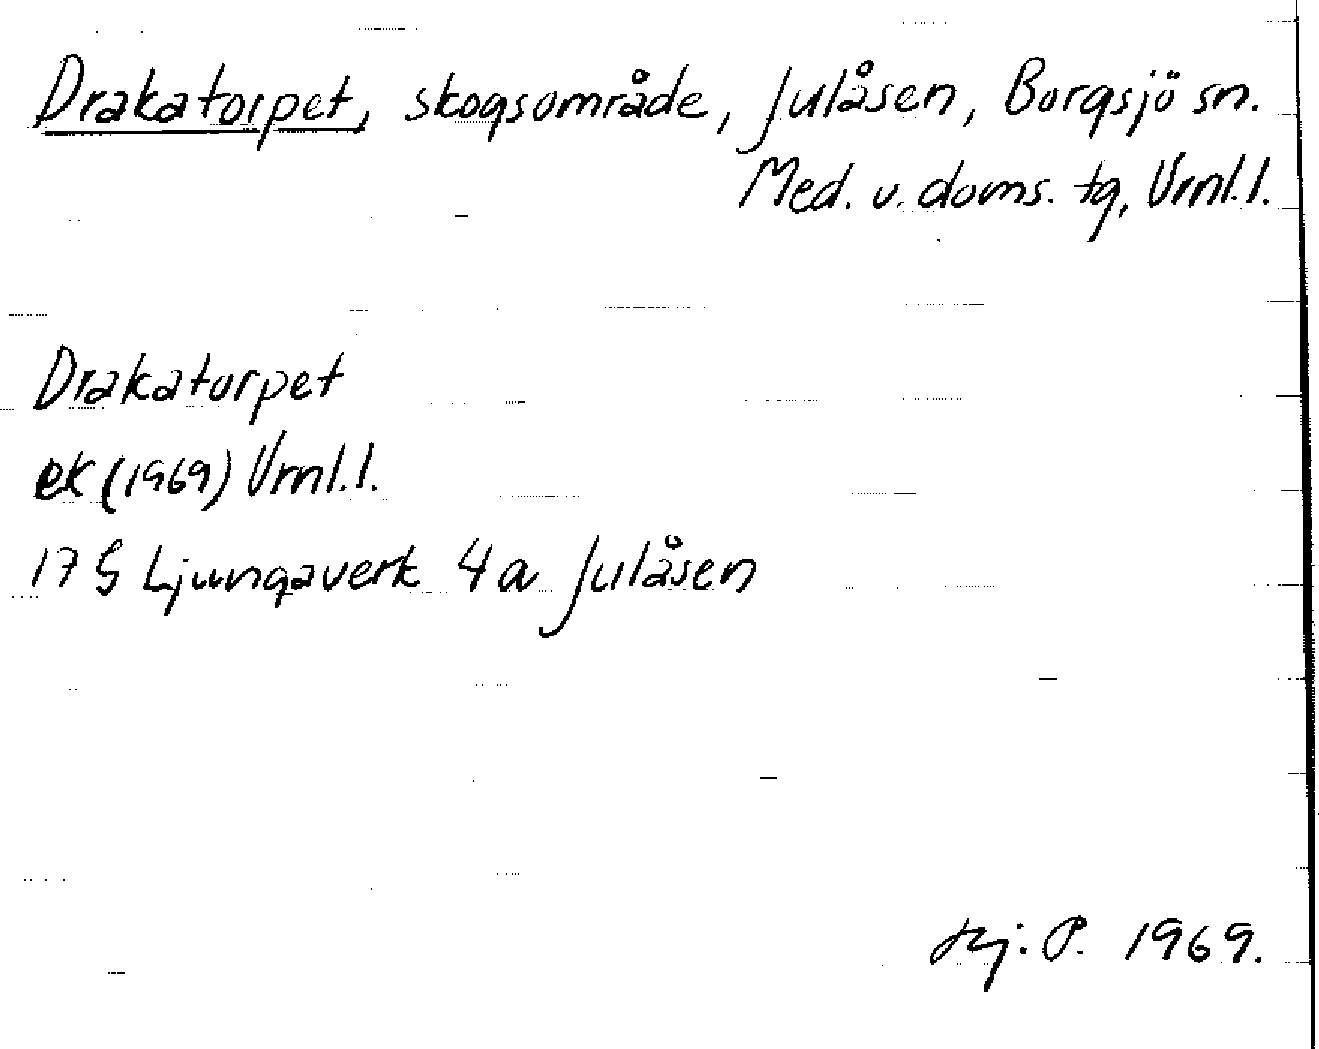 Drakatorpet, skogsområde, Julåsen, Borgsjö sn.
Med. v. doms. tg, Vrnl.l.
Drakatorpet
ek (1969) Vrnl.l.
17 G Ljungaverk 4a Julåsen
Hj. P. 1969.